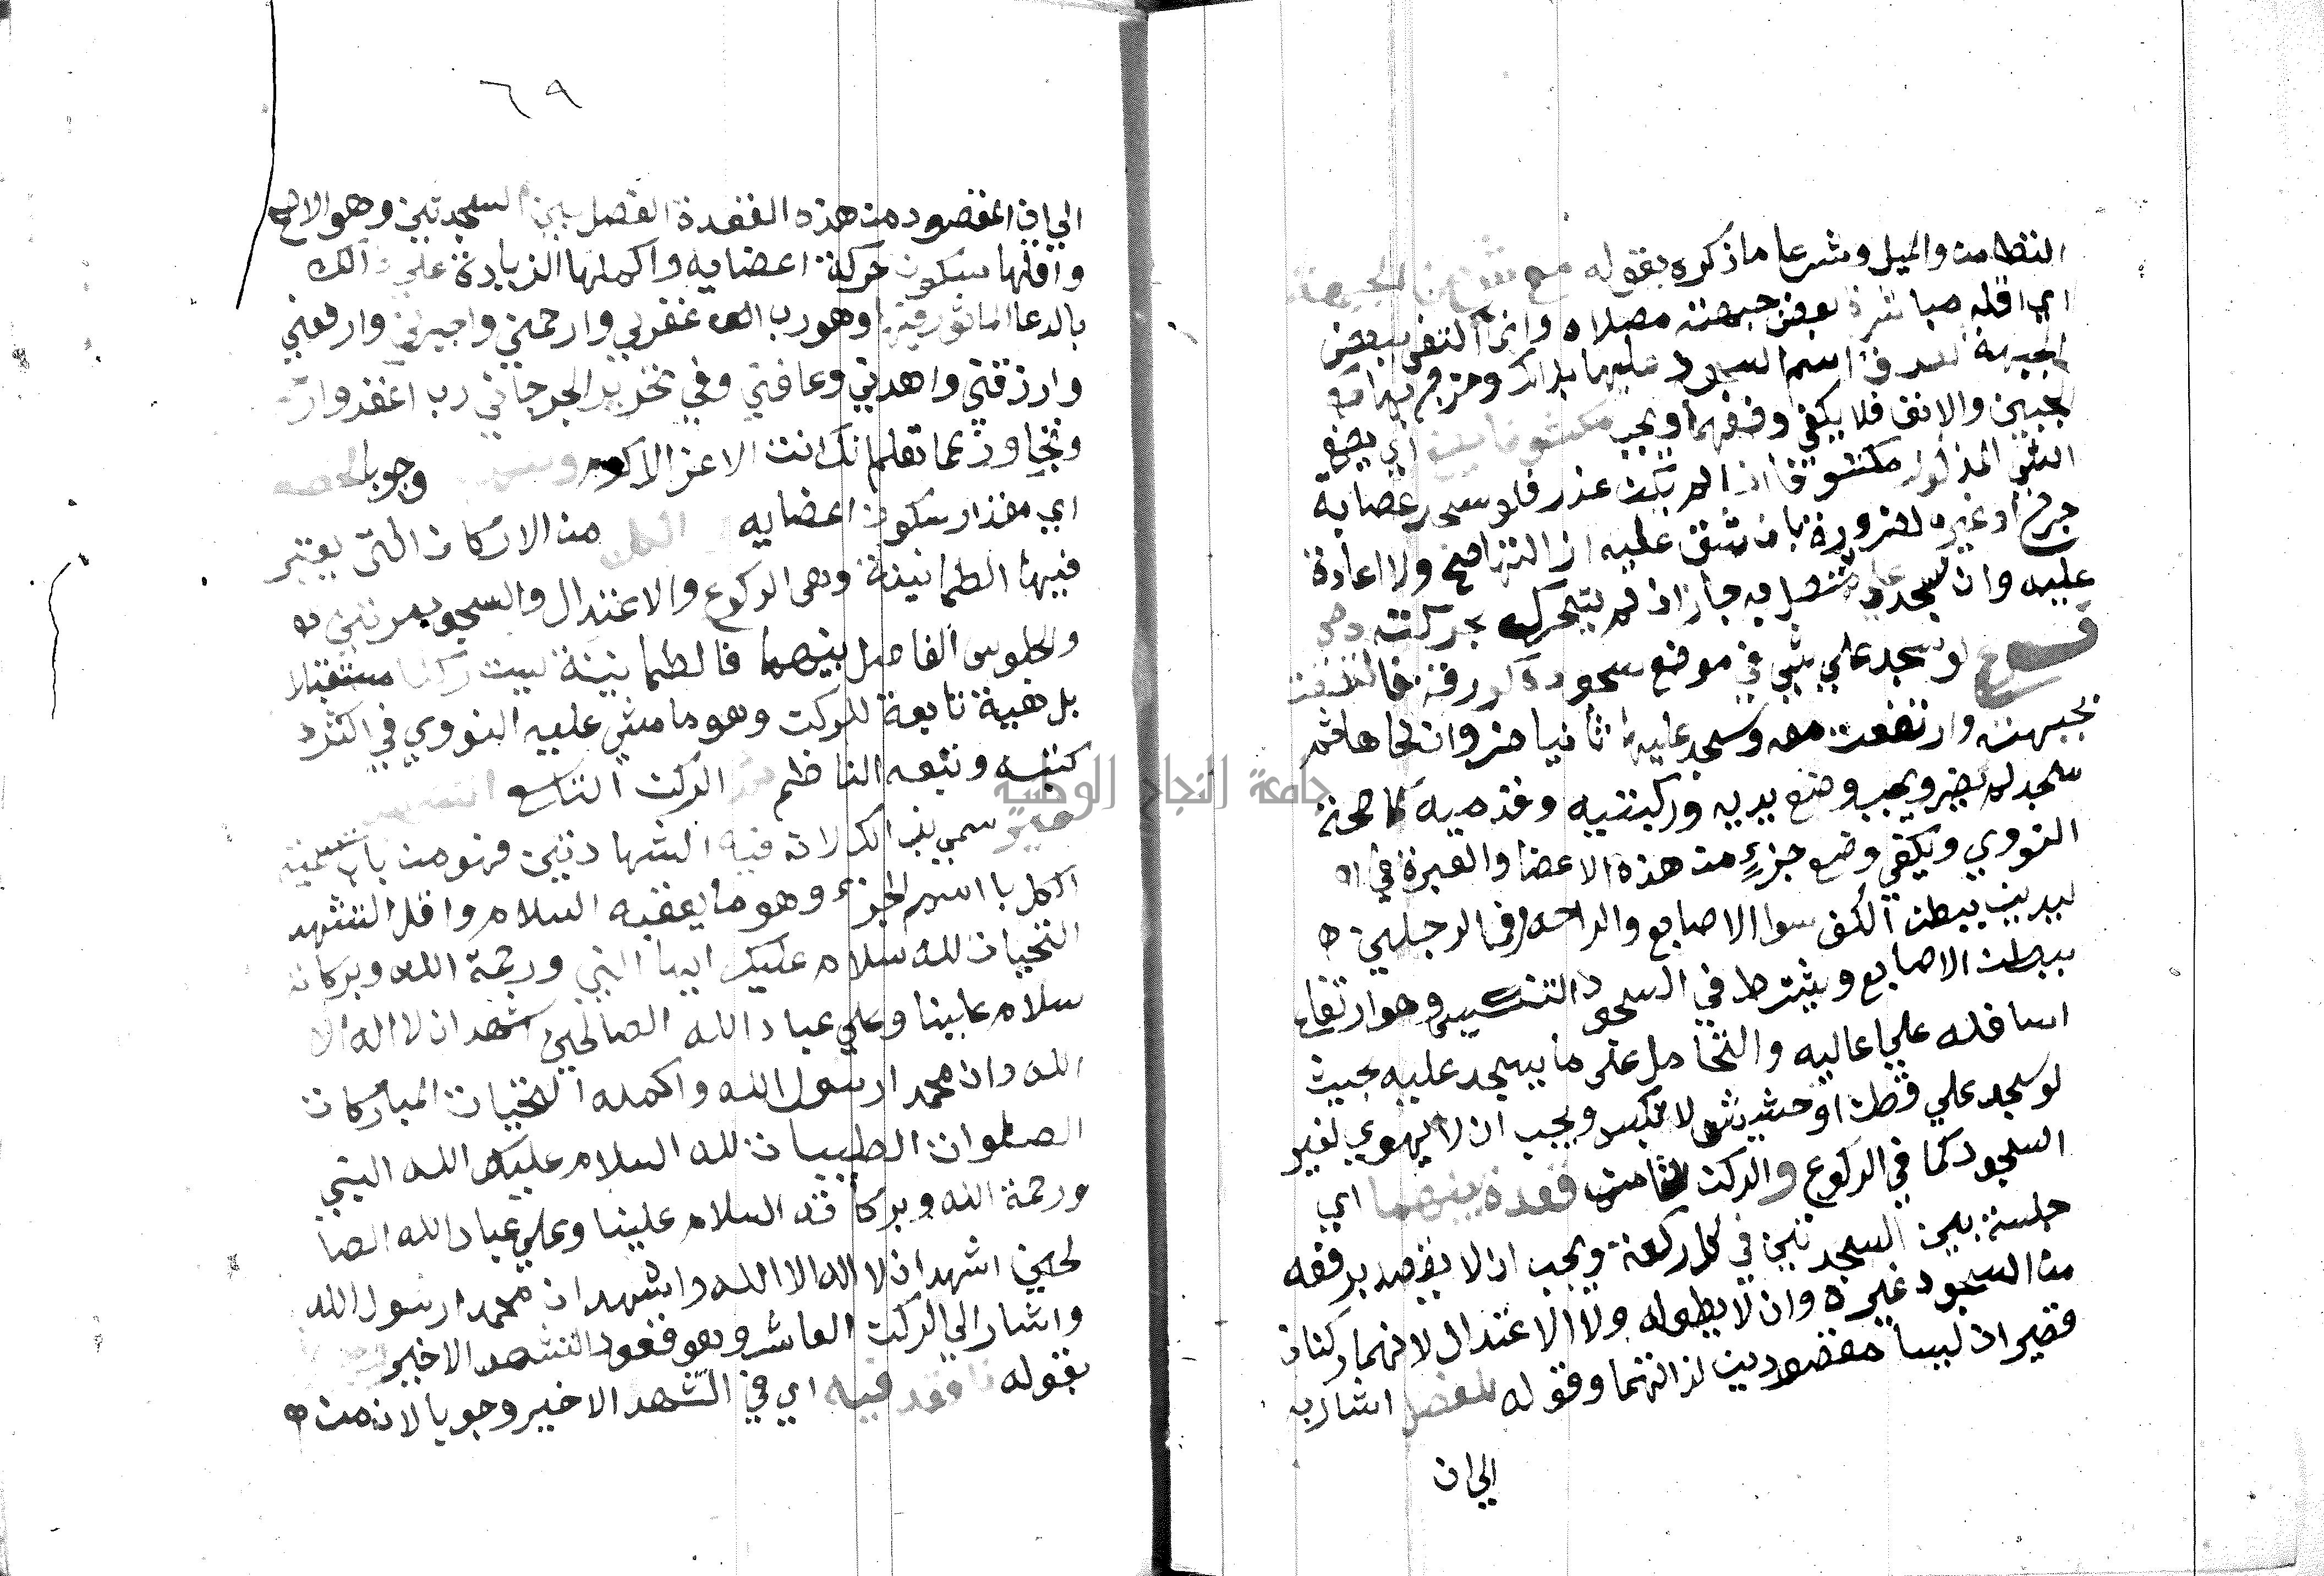 التطامن والميل وشرعا ماذكره بقوله مع شي من الجبهة
اي اقله مباشرة بعض جبهته مصلاه وانما اكتفى ببعض
الجبهة لصدق اسم السجود عليها بذلك وخرج بها
الجبين والانف فلا يكفي وضعهما ويجب مكشوفا اي يضع
الشي المذكور مكشوفا اذا لم يكن عذر فلو سجد عصابة
جرح او غيره لضرورة بان شق عليه ازالتها صح ولا اعادة
عليه وان سجد على متصل به جاز ان لم يتحرك بحركته
فرع لو سجد علي شي في موضع سجوده كورقة فالتصقت
بجبهته وارتفعت معه وسجد عليها ثانيا ضر وان نحاها ثم
سجد لم يضر ويجب وضع يديه وركبتيه وقدميه كما صححه
النووي ويكفي وضع جزء من هذه الاعضا والعبرة في ا
ليدين ببطن الكف سوا الاصابع والراحه وفي الرجلين
ببطن الاصابع ويشترط في السجود التنكيس وهو ارتفاع
اسافله علي اعاليه والتحامل على ما يسجد عليه بحيث
لو سجد علي قطن او حشيش لانكبس ويجب ان لا يهوي لغير
السجود كما في الركوع والركن الثامن قعدة بينهما اي
جلسة بين السجدتين في كل ركعة ويجب ان لا يقصد برفعه
من السجود غيره وان لا يطوله ولا الاعتدال لانهما ركنان
قصيران ليسا مقصودين لذاتهما وقوله للفصل اشار به
الي ان
٦٩
الي ان المقصود من هذه القعدة الفصل بين السجدتين وهو الاصح
واقلها سكون حركة اعضايه واكملها الزيادة علي ذالك
بالدعا الماثور فيها وهو رب اغفر لي وارحمني واجبرني وارفعني
وارزقني واهدني وعافني وفي تحرير الجرجاني رب اغفر وارحم
وتجاوز عما تعلم انك انت الاعز الاكرم وجوبا لحظه
اي مقدار سكون اعضايه الكل من الاركان التي يعتبر
فيها الطمانينة وهى الركوع والاعتدال والسجود مرتين
والجلوس الفاصل بينهما فالطمانينة ليست ركنا مستقلا
بل هيية تابعة للركن وهو ما مشي عليه النووي في اكثر
كتبه وتبعه الناظم الركن التاسع
سمي بذالك لان فيه الشهادتين فهو من باب تسمية
الكل با اسم الجزء وهو ما يعقبه السلام واقل التشهد
التحيات لله سلام عليك ايها النبي ورحمة الله وبركاته
سلام علينا وعلي عباد الله الصالحين اشهد ان لا اله الا
الله وان محمدا رسول الله واكمله التحيات المباركات
الصلوات الطيبات لله السلام عليك الله النبي
ورحمة الله وبركاته السلام علينا وعلي عباد الله الصا
لحين اشهد ان لا اله الا الله واشهد ان محمدا رسول الله
واشار الي الركن العاشر وهو قعود التشهد الاخير
بقوله فاقعد فيه اي في التشهد الاخير وجوبا لانه من
جامعة النجاح الوطنية